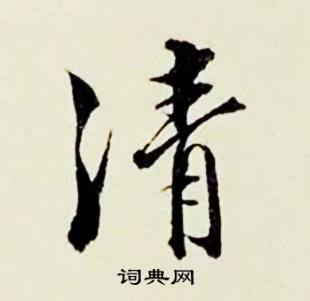 清
词典网